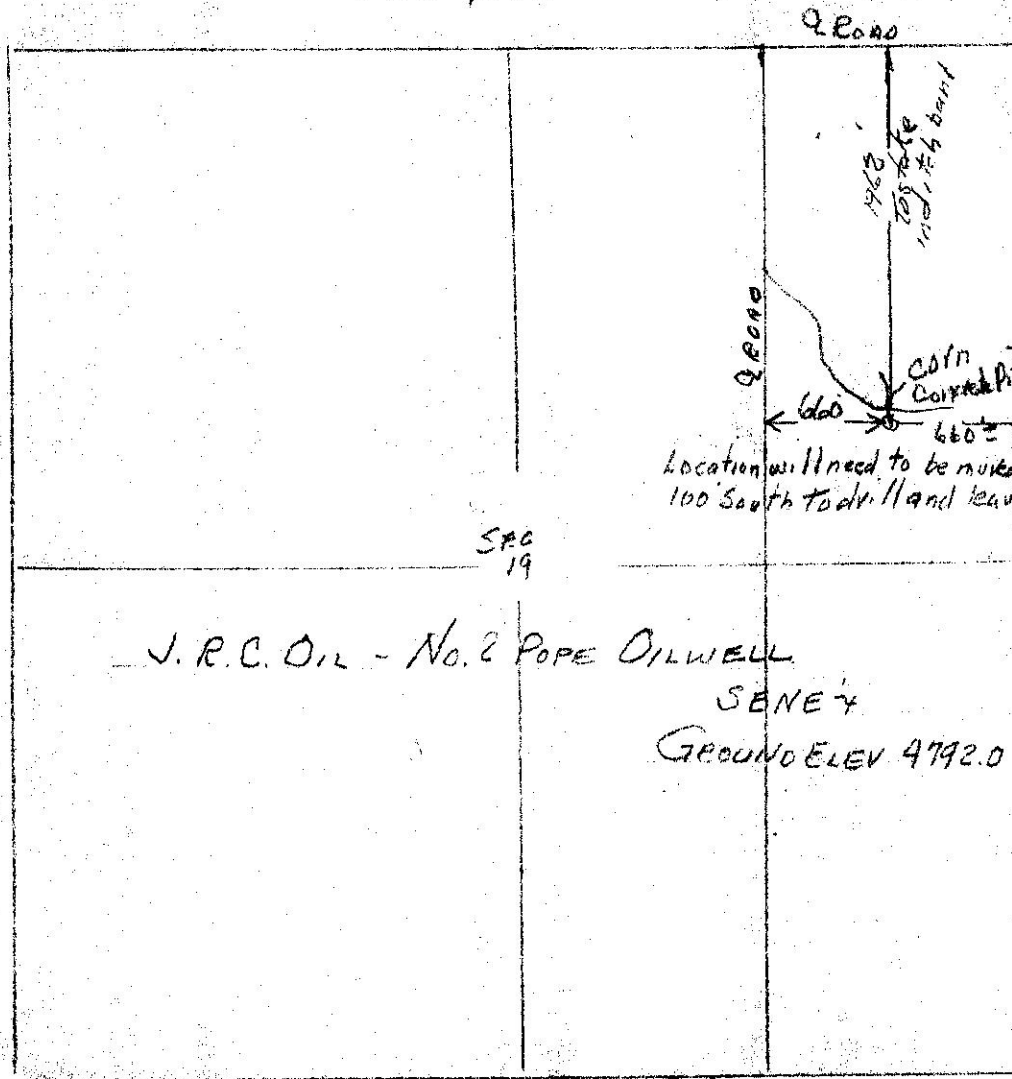 Q ROAD
to stake
in ditch bank
Q ROAD
Corn
660
660'±
Location will need to be
100' South to drill and
SEC
19
J.R.C. OIL - No. 2 POPE OILWELL
SENE ¼
GROUND ELEV 4792.0